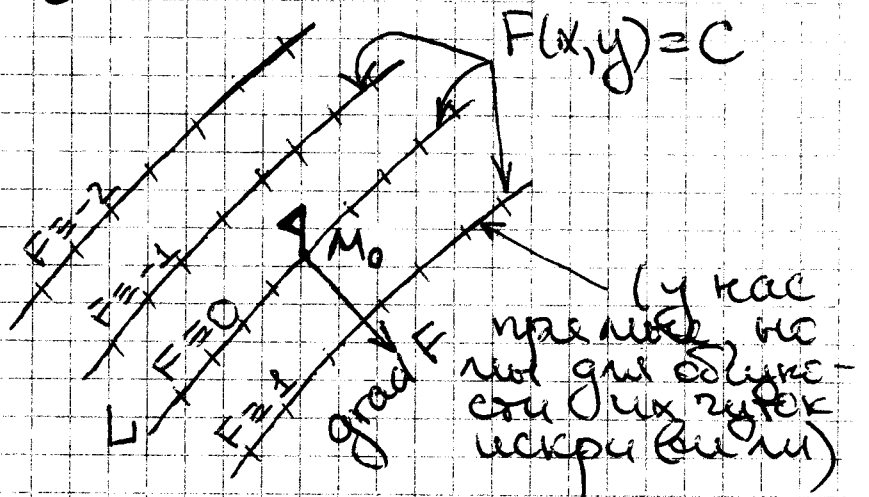 F(x,y)=C
F≡-2
F≡-1
M₀
F≡0
L
F≡1
grad F
(у нас
прямые, но
мы для общно-
сти их чуток
искривили)